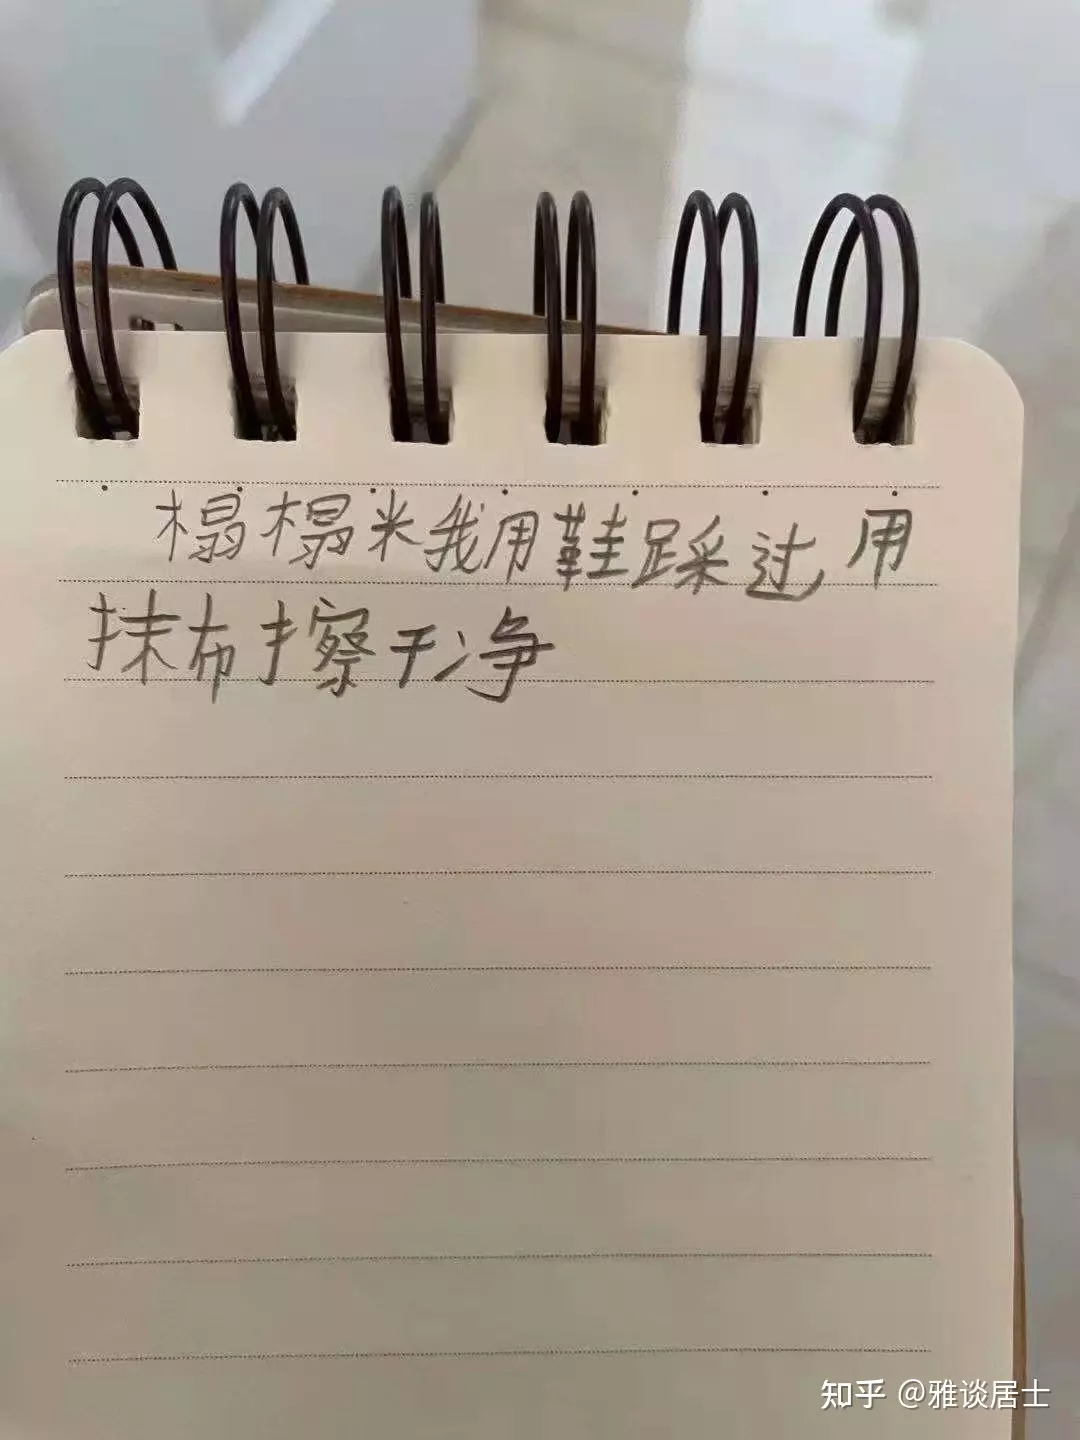 榻榻米我用鞋踩过用
抹布擦干净
知乎 @雅谈居士